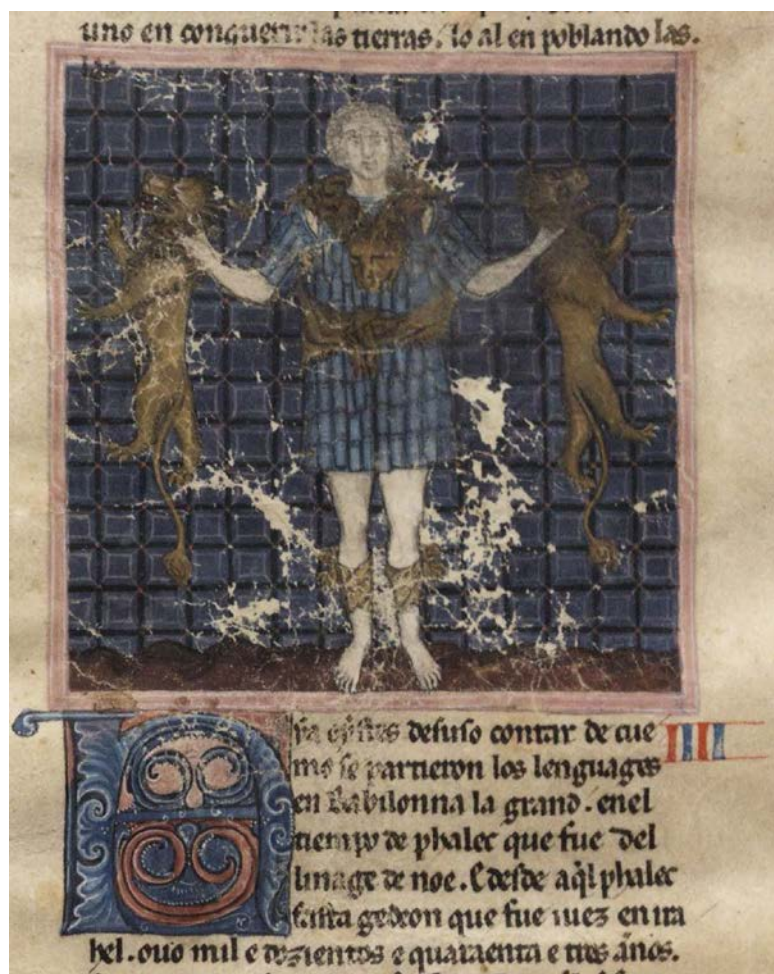 uno en conquerir las tierras. lo al en poblando las.
las
IIII
ya oystes desuso contar de cue
mo se partieron los lenguages
en Babilonna la grand. enel
tiempo de phalec que fue del
linage de noe. E desde aq̃l phalec
fasta gedeon que fue iuez en ira
hel. ouo mil e dozientos e quaraenta e tres annos.